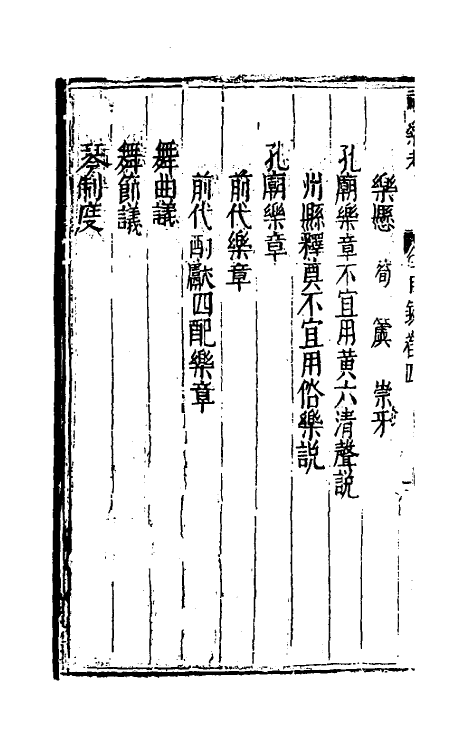 樂懸 筍 簴 崇牙
孔廟樂章不宜用黄六清聲説
州縣釋奠不宜用俗樂説
孔廟樂章
前代樂章
前代酌獻四配樂章
舞曲議
舞節議
琴制度